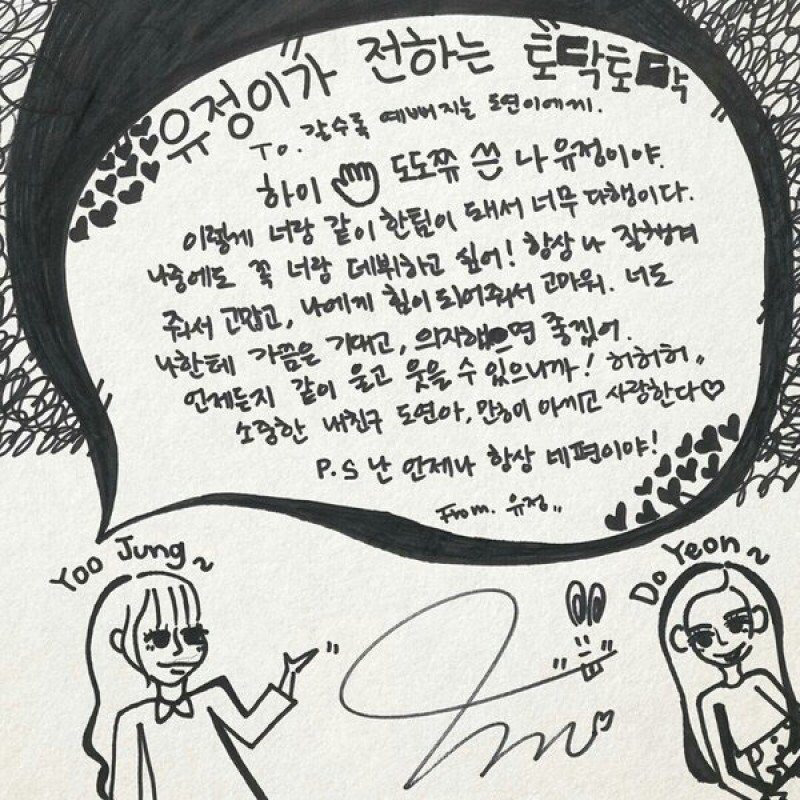 유정이가 전하는 토닥토닥
To. 갈수록 예뻐지는 도연이에게.
하이 도도쮸 나 유정이야.
이렇게 너랑 같이 한팀이 돼서 너무 다행이다.
나중에도 꼭 너랑 데뷔하고 싶어! 항상 나 잘챙겨
줘서 고맙고, 나에게 힘이 되어줘서 고마워. 너도
나한테 가끔은 기대고, 의지했으면 좋겠어.
언제든지 같이 울고 웃을 수 있으니까! 허허허"
소중한 내친구 도연아, 많이 아끼고 사랑한다♡
P.S 난 언제나 항상 네편이야!
From. 유정"
Yoo Jung~
Do Yeon~